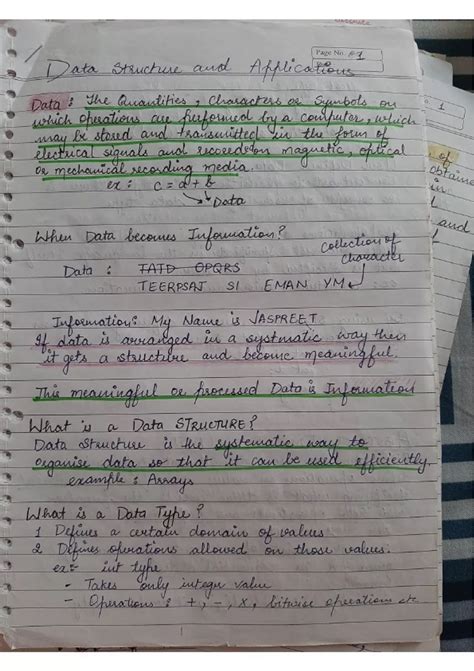 Page No. #1
Data Structure and Applications
Data : The Quantities, Characters or Symbols on
which operations are performed by a computer, which
may be stored and transmitted in the form of
electrical signals and recorded on magnetic, optical
or mechanical recording media.
ex : c = a + b
Data
When Data becomes Information?
collection of
character
Data : TATD OPQRS
TEERPSAJ SI EMAN YM
Information: My Name is JASPREET
If data is arranged in a systmatic way then
it gets a structure and become meaningful.
This meaningful or processed Data is Information
What is a Data STRUCTURE?
Data Structure is the systematic way to
organise data so that it can be used efficiently.
example : Arrays
What is a Data Type?
1 Defines a certain domain of values
2 Defines operations allowed on those values.
ex:- int type
- Takes only integr value
- Operations : +, -, x, bitwise operations etc
1
of
obtaine
in
and